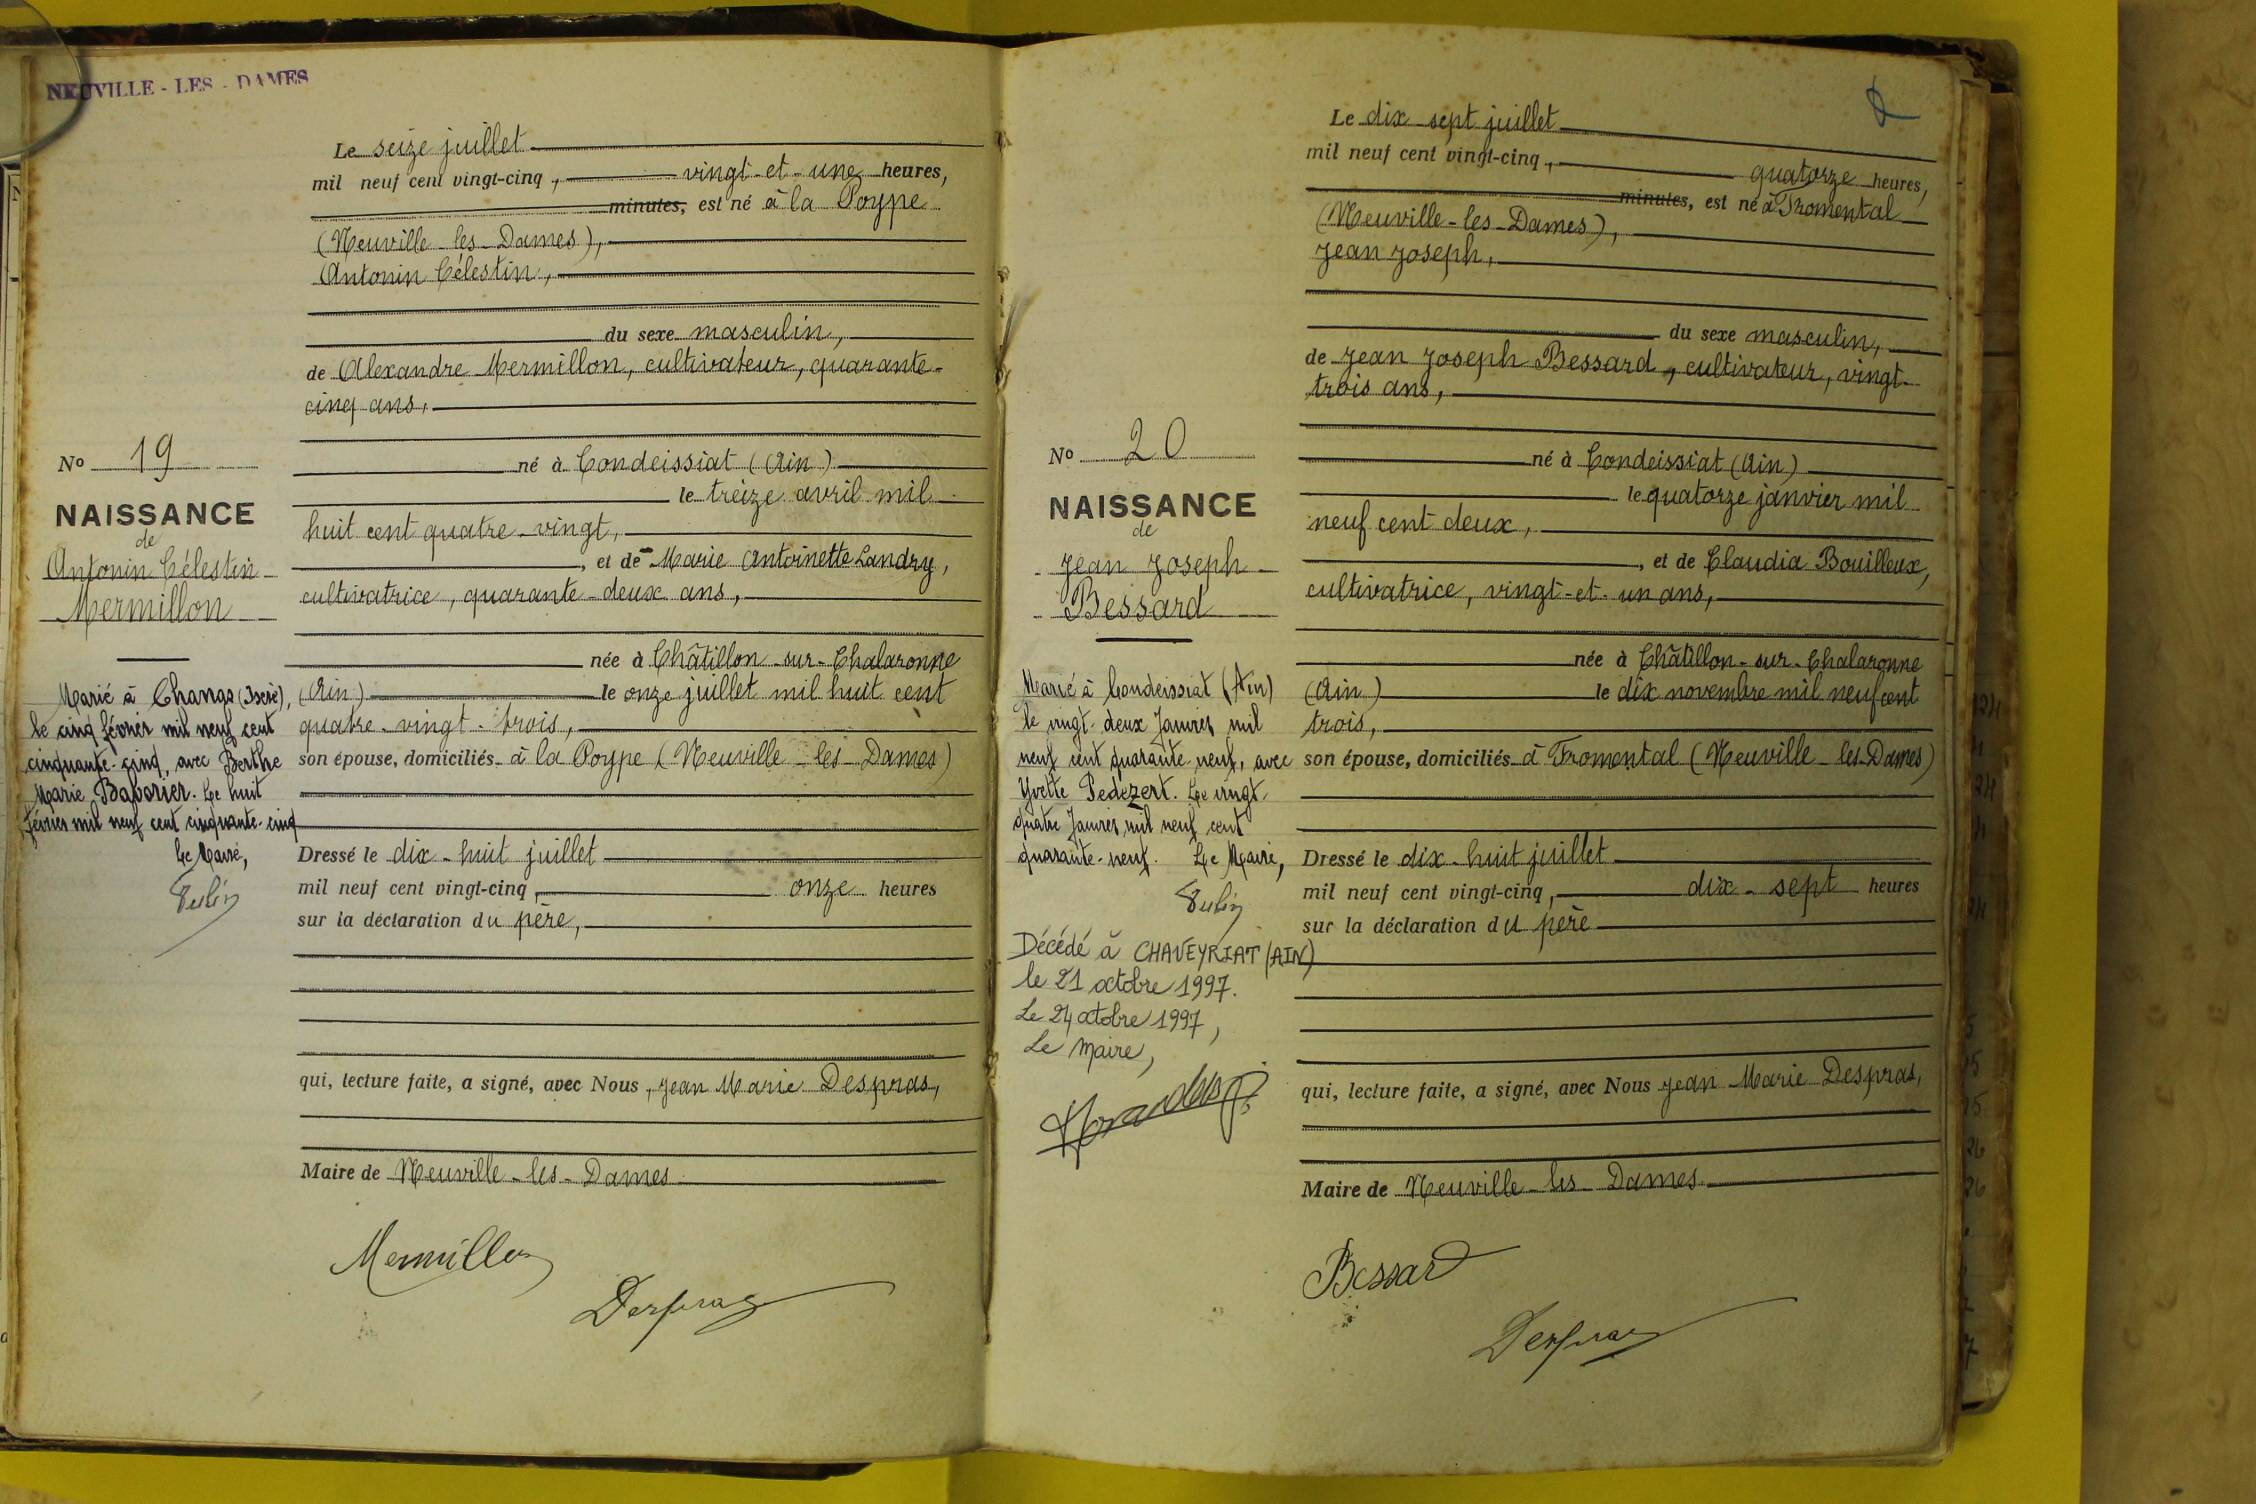 NEUVILLE - LES - DAMES
Le seize juillet
mil neuf cent vingt-cinq, vingt-et-une heures,
minutes, est né à la Poype
(Neuville-les-Dames),
Antonin Célestin,
du sexe masculin,
de Alexandre Mermillon, cultivateur, quarante-
cinq ans,
né à Condeissiat (Ain)
le treize avril mil
huit cent quatre-vingt,
, et de Marie Antoinette Landry,
cultivatrice, quarante-deux ans,
née à Châtillon-sur-Chalaronne
(Ain) le onze juillet mil huit cent
quatre-vingt-trois,
son épouse, domiciliés à la Poype (Neuville-les-Dames)
Dressé le dix-huit juillet
mil neuf cent vingt-cinq, onze heures
sur la déclaration du père,
qui, lecture faite, a signé, avec Nous, Jean Marie Despras,
Maire de Neuville-les-Dames
Mermillon
Despras
No 19
NAISSANCE
de
Antonin Célestin
Mermillon
Marié à (Isère),
le cinq février mil neuf cent
cinquante-cinq, avec Berthe
Marie. Le huit
février mil neuf cent cinquante-cinq
Le Maire,
Le dix-sept juillet
mil neuf cent vingt-cinq, quatorze heures,
minutes, est né à Fromental
(Neuville-les-Dames),
Jean Joseph,
du sexe masculin,
de Jean Joseph Bessard, cultivateur, vingt-
trois ans,
né à Condeissiat (Ain)
le quatorze janvier mil
neuf cent deux,
, et de Claudia Bouilleux,
cultivatrice, vingt-et-un ans,
née à Châtillon-sur-Chalaronne
(Ain) le dix novembre mil neuf cent
trois,
son épouse, domiciliés à Fromental (Neuville-les-Dames)
Dressé le dix-huit juillet
mil neuf cent vingt-cinq, dix-sept heures
sur la déclaration du père
qui, lecture faite, a signé, avec Nous Jean Marie Despras,
Maire de Neuville-les-Dames
Bessard
Despras
No 20
NAISSANCE
de
Jean Joseph
Bessard
Marié à Condeissiat (Ain)
le vingt-deux Janvier mil
neuf cent quarante-neuf, avec
Yvette Pedezert. Le vingt-
quatre Janvier mil neuf cent
quarante-neuf. Le Maire,
Décédé à CHAVEYRIAT (AIN)
le 21 octobre 1997.
Le 24 octobre 1997,
Le Maire,